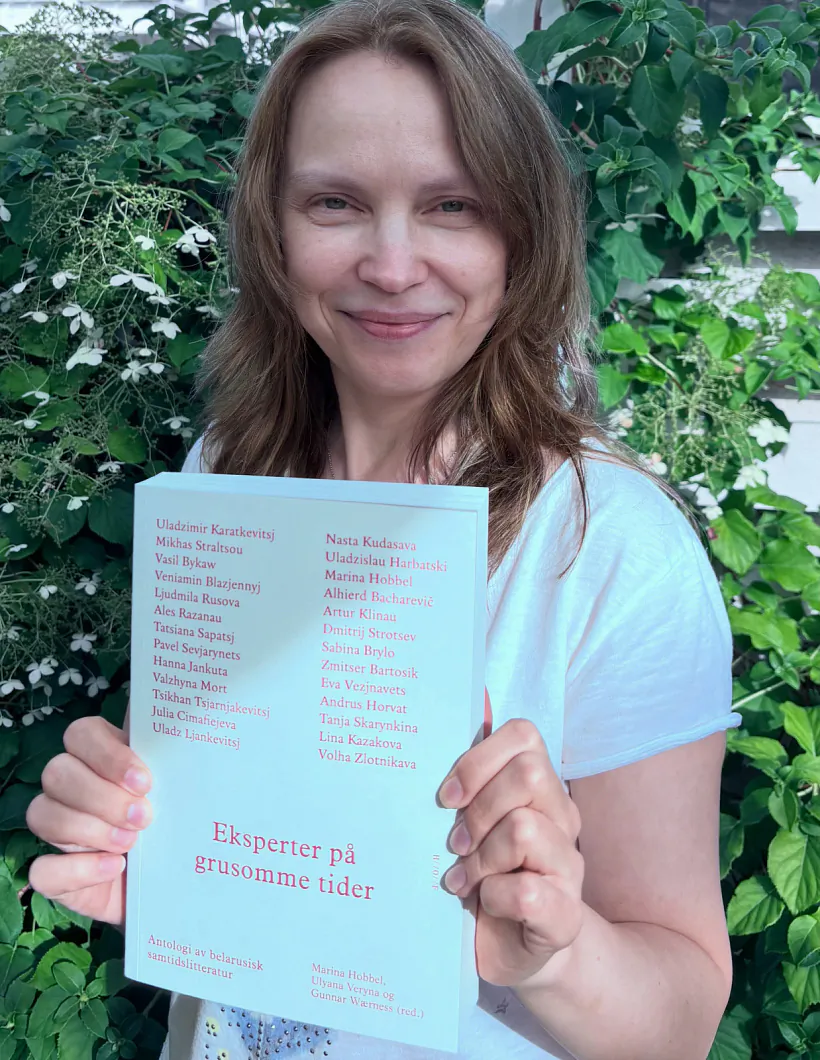 Uladzimir Karatkevitsj
Mikhas Straltsou
Vasil Bykaw
Veniamin Blazjennyj
Ljudmila Rusova
Ales Razanau
Tatsiana Sapatsj
Pavel Sevjarynets
Hanna Jankuta
Valzhyna Mort
Tsikhan Tsjarnjakevitsj
Julia Cimafiejeva
Uladz Ljankevitsj
Nasta Kudasava
Uladzislau Harbatski
Marina Hobbel
Alhierd Bacharevič
Artur Klinau
Dmitrij Strotsev
Sabina Brylo
Zmitser Bartosik
Eva Vezjnavets
Andrus Horvat
Tanja Skarynkina
Lina Kazakova
Volha Zlotnikava
Eksperter på
grusomme tider
Antologi av belarusisk
samtidslitteratur
Marina Hobbel,
Ulyana Veryna og
Gunnar Wærness (red.)